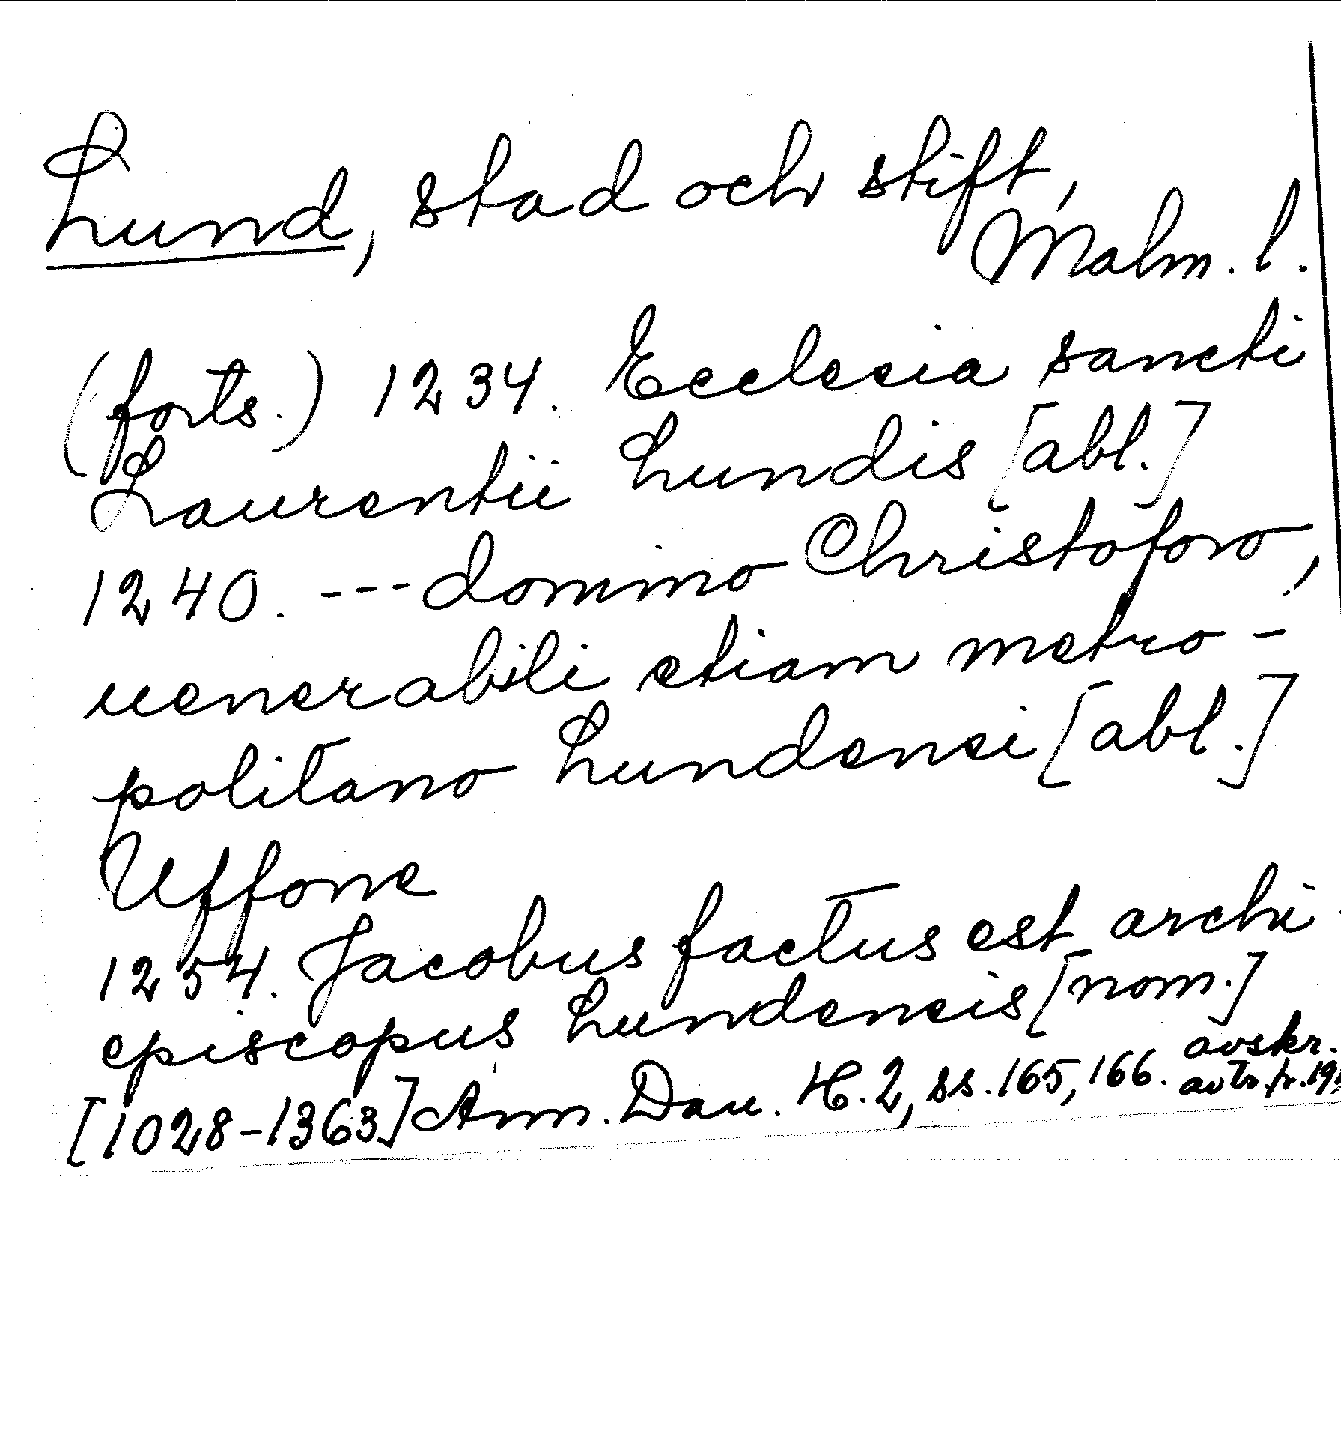 Lund, stad och stift,
Malm. l.
(forts.) 1234. Ecclesia sancti
Laurentii Lundis [abl.]
1240. --- domino Christoforo,
uenerabili etiam metro-
politano Lundensi [abl.]
Uffone
1254. Jacobus factus est archi-
episcopus Lundensis [nom.]
[1028-1363] Ann. Dan. H. 2, ss. 165, 166. avskr.
avtr. fr.